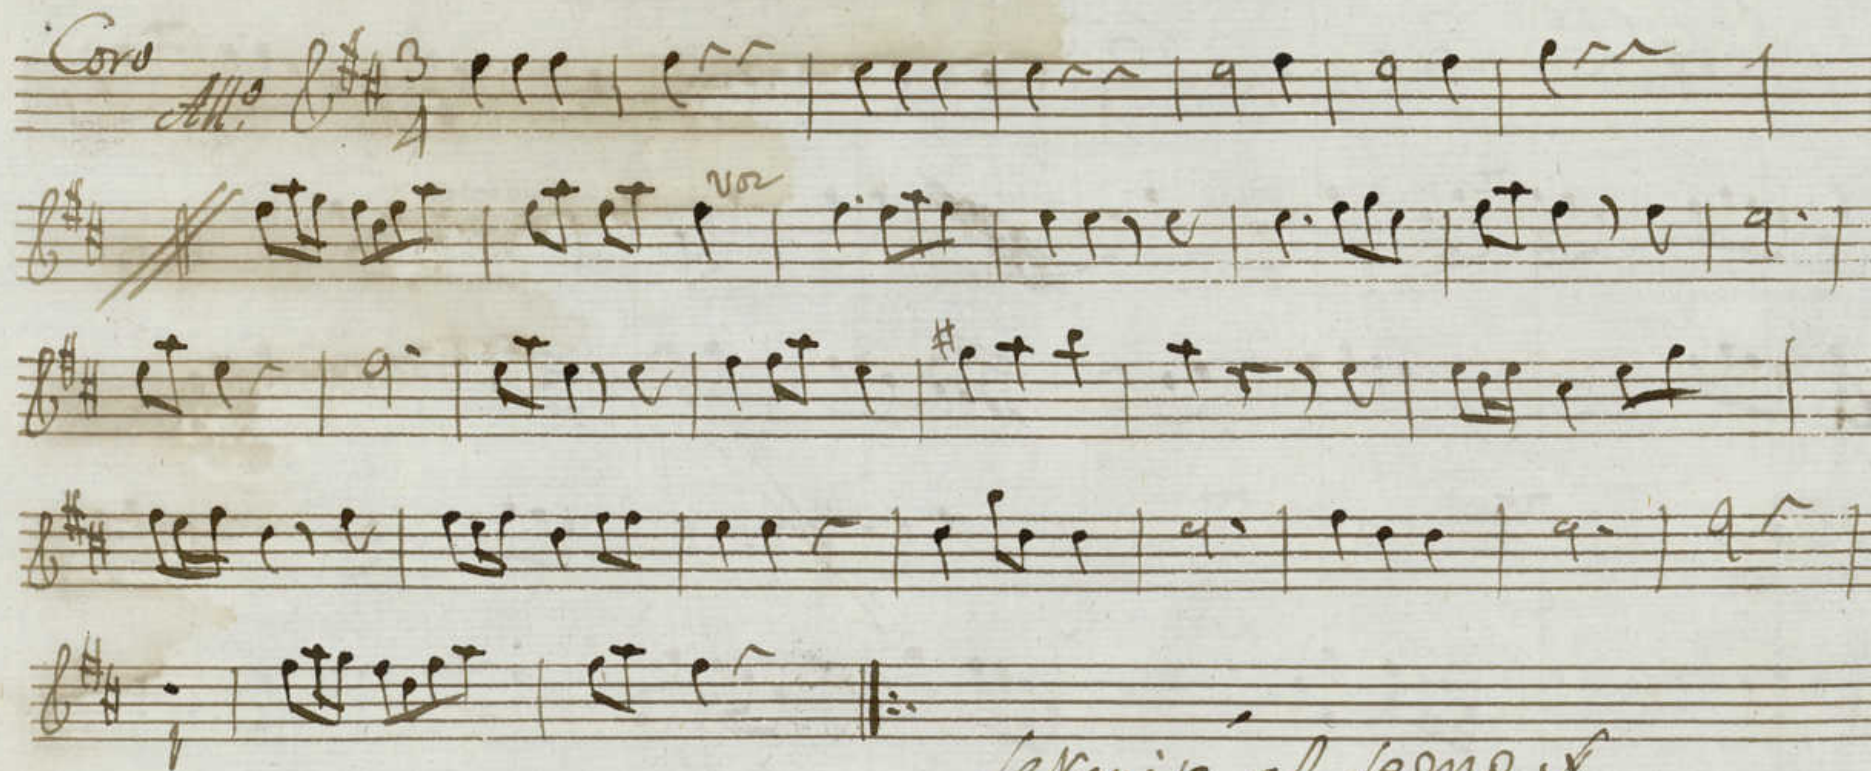 Coro
All.º 3/4
voz
al segno